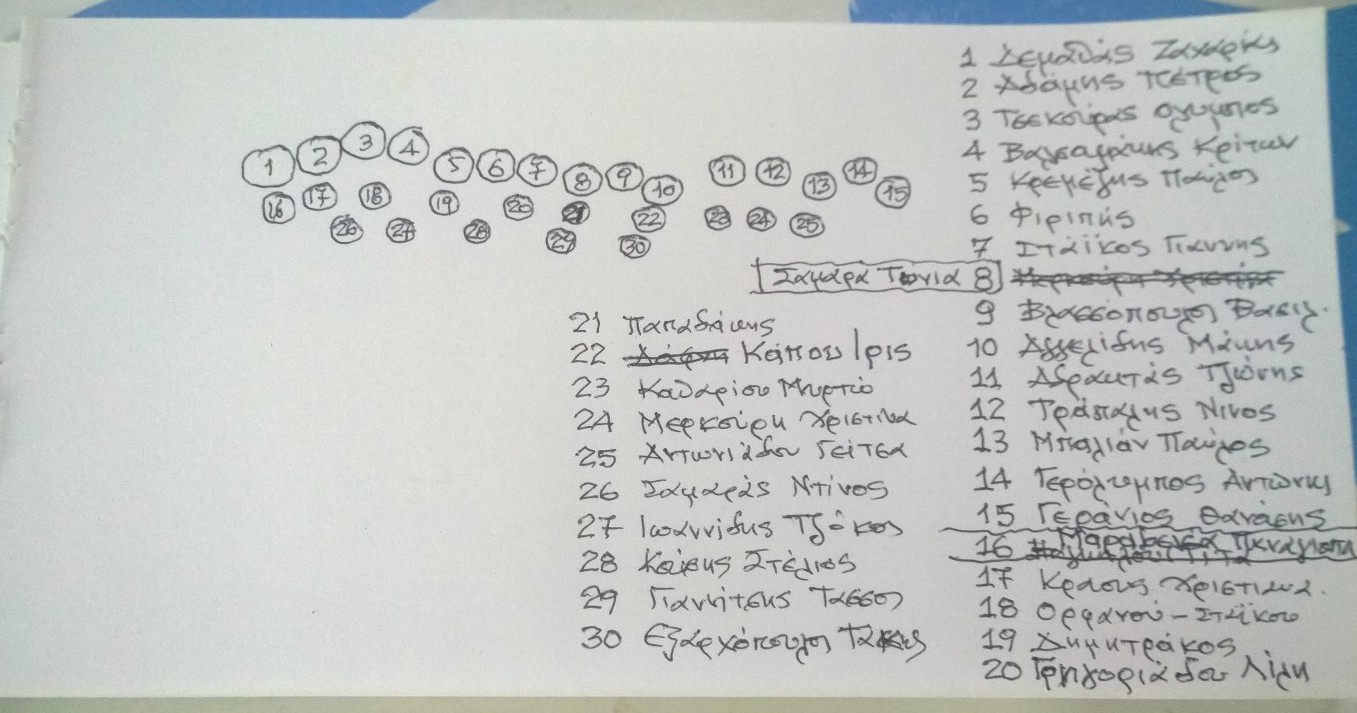 1 2 3 4 5 6 7 8 9 10 11 12 13 14 15
16 17 18 19 20 21 22 23 24 25
26 27 28 29 30
1 Δεμαθάς Ζαχαρίας
2 Αδάμης Πέτρος
3 Τσεκούρας Ολυμπος
4 Βαλσαμάκης Κρίτων
5 Κρεμέζης Παύλος
6 Φιριπής
7 Στάϊκος Γιαννης
Σαμαρά Τώνια 8
9 Βλασσόπουλος Βασιλ.
10 Αγγελίδης Μάκης
11 Αδρακτάς Τζώνης
12 Τράπαλης Νινος
13 Μπαλιάν Παύλος
14 Γερόλυμπος Αντώνης
15 Γεράνιος Θανάσης
16 Πεναγιωτα
17 Χριστινα.
18 Ορφανού-Στάϊκου
19 Δημητράκος
20 Γρηγοριάδου Λίλη
21 Παπαδάκης
22 Κάπου Ιρις
23 Καθαρίου Μυρτώ
24 Μερκούρη Χριστινα
25 Αντωνιάδου Γείτσα
26 Σαμαράς Ντίνος
27 Ιωαννίδης Τζόκος
28 Καίρης Στέλιος
29 Γιαννίτσης Τάσσος
30 Εξαρχόπουλος Τάκης